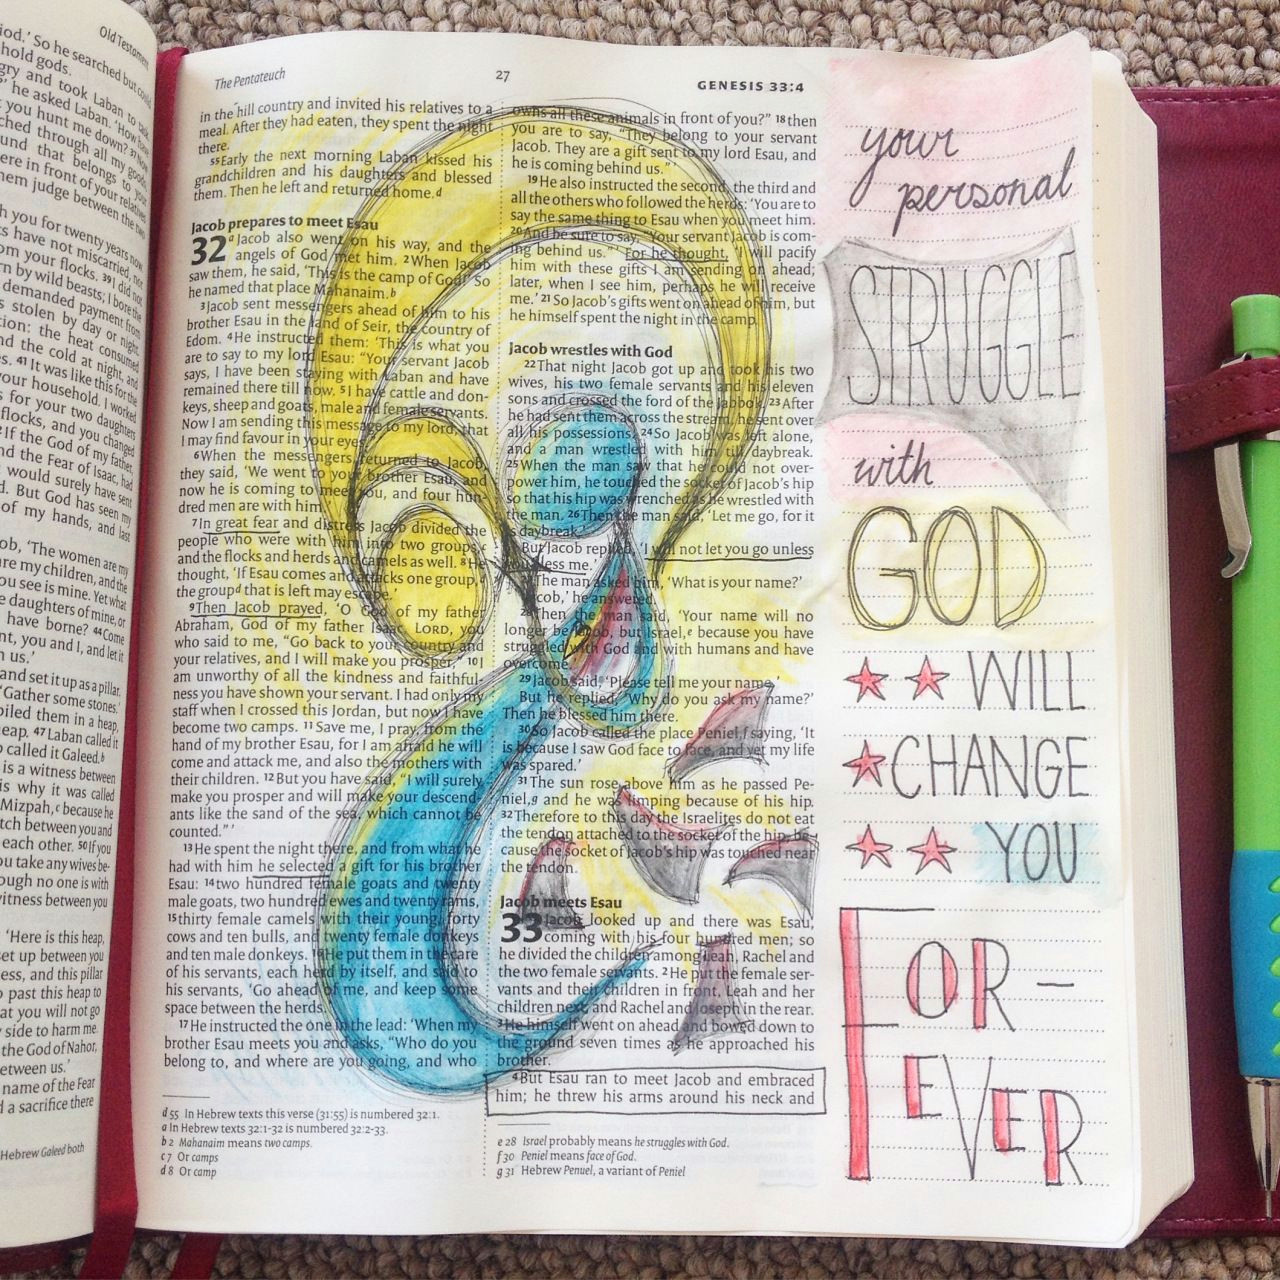 Old Testament
iod.' So he searched but could
hold gods.
gry and took Laban to task.
he asked Laban. 'How have
you hunt me down? 37 Now
ched through all my goods,
und that belongs to your
ere in front of your relatives
them judge between the two
h you for twenty years now.
ts have not miscarried, nor
om your flocks. 39 I did not
rn by wild beasts; I bore the
demanded payment from
stolen by day or night.
tion: the heat consumed
nd the cold at night, and
es. 41 It was like this for the
your household. I worked
for your two daughters
flocks, and you changed
2 If the God of my father,
nd the Fear of Isaac, had
would surely have sent
d. But God has seen my
of my hands, and last
ob, 'The women are my
re my children, and the
ou see is mine. Yet what
e daughters of mine, or
have borne? 44 Come
nt, you and I, and let it
n us.'
and set it up as a pillar.
'Gather some stones.'
piled them in a heap,
eap. 47 Laban called it
o called it Galeed.b
is a witness between
is why it was called
Mizpah,c because he
tch between you and
each other. 50 If you
ou take any wives be-
ough no one is with
witness between you
'Here is this heap,
set up between you
ess, and this pillar
o past this heap to
at you will not go
side to harm me.
the God of Nahor,
etween us.'
name of the Fear
d a sacrifice there
Hebrew Galeed both
The Pentateuch
27
GENESIS 33:4
in the hill country and invited his relatives to a
meal. After they had eaten, they spent the night
there.
55 Early the next morning Laban kissed his
grandchildren and his daughters and blessed
them. Then he left and returned home.d
Jacob prepares to meet Esau
32 a Jacob also went on his way, and the
angels of God met him. 2 When Jacob
saw them, he said, 'This is the camp of God!' So
he named that place Mahanaim.b
3 Jacob sent messengers ahead of him to his
brother Esau in the land of Seir, the country of
Edom. 4 He instructed them: 'This is what you
are to say to my lord Esau: "Your servant Jacob
says, I have been staying with Laban and have
remained there till now. 5 I have cattle and don-
keys, sheep and goats, male and female servants.
Now I am sending this message to my lord, that
I may find favour in your eyes."'
6 When the messengers returned to Jacob,
they said, 'We went to your brother Esau, and
now he is coming to meet you, and four hun-
dred men are with him.'
7 In great fear and distress Jacob divided the
people who were with him into two groups,c
and the flocks and herds and camels as well. 8 He
thought, 'If Esau comes and attacks one group,
the groupd that is left may escape.'
9 Then Jacob prayed, 'O God of my father
Abraham, God of my father Isaac, LORD, you
who said to me, "Go back to your country and
your relatives, and I will make you prosper," 10 I
am unworthy of all the kindness and faithful-
ness you have shown your servant. I had only my
staff when I crossed this Jordan, but now I have
become two camps. 11 Save me, I pray, from the
hand of my brother Esau, for I am afraid he will
come and attack me, and also the mothers with
their children. 12 But you have said, "I will surely
make you prosper and will make your descend-
ants like the sand of the sea, which cannot be
counted."'
13 He spent the night there, and from what he
had with him he selected a gift for his brother
Esau: 14 two hundred female goats and twenty
male goats, two hundred ewes and twenty rams,
15 thirty female camels with their young, forty
cows and ten bulls, and twenty female donkeys
and ten male donkeys. 16 He put them in the care
of his servants, each herd by itself, and said to
his servants, 'Go ahead of me, and keep some
space between the herds.'
17 He instructed the one in the lead: 'When my
brother Esau meets you and asks, "Who do you
belong to, and where are you going, and who
d 55 In Hebrew texts this verse (31:55) is numbered 32:1.
a In Hebrew texts 32:1-32 is numbered 32:2-33.
b 2 Mahanaim means two camps.
c 7 Or camps
d 8 Or camp
owns all these animals in front of you?" 18 then
you are to say, "They belong to your servant
Jacob. They are a gift sent to my lord Esau, and
he is coming behind us."'
19 He also instructed the second, the third and
all the others who followed the herds: 'You are to
say the same thing to Esau when you meet him.
20 And be sure to say, "Your servant Jacob is com-
ing behind us."' For he thought, 'I will pacify
him with these gifts I am sending on ahead;
later, when I see him, perhaps he will receive
me.' 21 So Jacob's gifts went on ahead of him, but
he himself spent the night in the camp.
Jacob wrestles with God
22 That night Jacob got up and took his two
wives, his two female servants and his eleven
sons and crossed the ford of the Jabbok. 23 After
he had sent them across the stream, he sent over
all his possessions. 24 So Jacob was left alone,
and a man wrestled with him till daybreak.
25 When the man saw that he could not over-
power him, he touched the socket of Jacob's hip
so that his hip was wrenched as he wrestled with
the man. 26 Then the man said, 'Let me go, for it
is daybreak.'
But Jacob replied, 'I will not let you go unless
you bless me.'
The man asked him, 'What is your name?'
'Jacob,' he answered.
28 Then the man said, 'Your name will no
longer be Jacob, but Israel,e because you have
struggled with God and with humans and have
overcome.'
29 Jacob said, 'Please tell me your name.'
But he replied, 'Why do you ask my name?'
Then he blessed him there.
30 So Jacob called the place Peniel,f saying, 'It
is because I saw God face to face, and yet my life
was spared.'
31 The sun rose above him as he passed Pe-
niel,g and he was limping because of his hip.
32 Therefore to this day the Israelites do not eat
the tendon attached to the socket of the hip, be-
cause the socket of Jacob's hip was touched near
the tendon.
Jacob meets Esau
33 Jacob looked up and there was Esau,
coming with his four hundred men; so
he divided the children among Leah, Rachel and
the two female servants. 2 He put the female ser-
vants and their children in front, Leah and her
children next, and Rachel and Joseph in the rear.
3 He himself went on ahead and bowed down to
the ground seven times as he approached his
brother.
4 But Esau ran to meet Jacob and embraced
him; he threw his arms around his neck and
e 28 Israel probably means he struggles with God.
f 30 Peniel means face of God.
g 31 Hebrew Penuel, a variant of Peniel
your
personal
STRUGGLE
with
GOD
WILL
CHANGE
YOU
FOR-
EVER